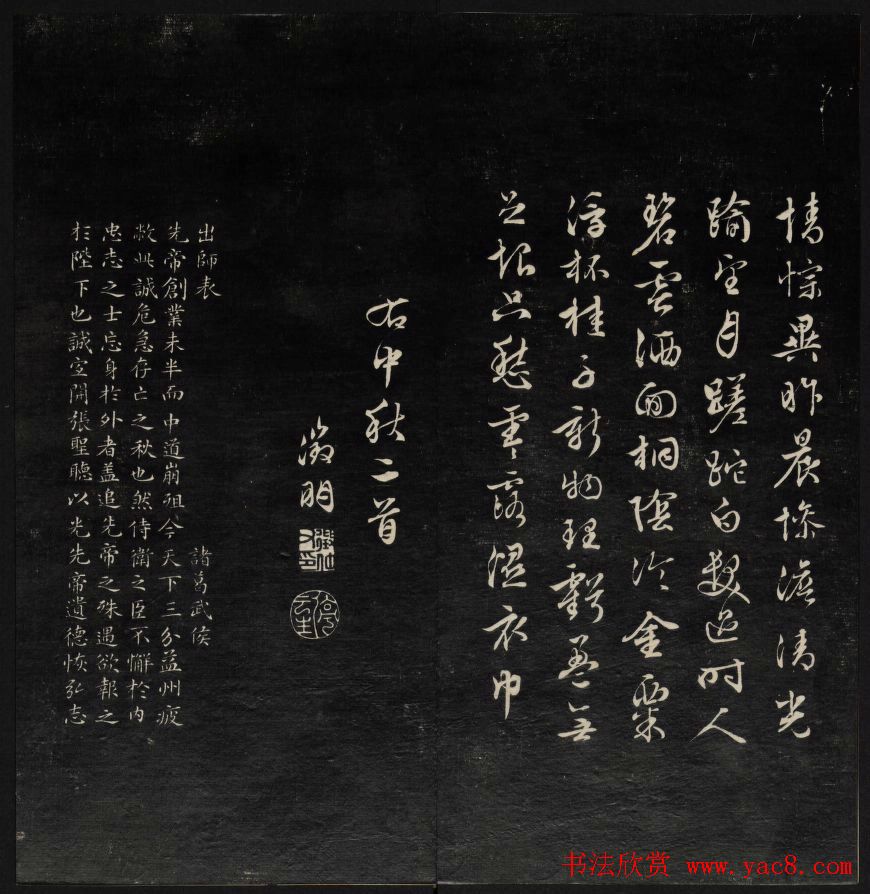 情悰異昨晨惨淡清光
踰望月蹉跎白髮過時人
碧雲洒面桐陰冷金粟
浮杯桂子新物理虧盈無
足恨只愁零露濕衣巾
右中秋二首
徵明
出師表 諸葛武侯
先帝創業未半而中道崩殂今天下三分益州疲
敝此誠危急存亡之秋也然侍衛之臣不懈於内
忠志之士忘身於外者盖追先帝之殊遇欲報之
於陛下也誠宜開張聖聽以光先帝遺德恢弘志
书法欣赏 www.yac8.com